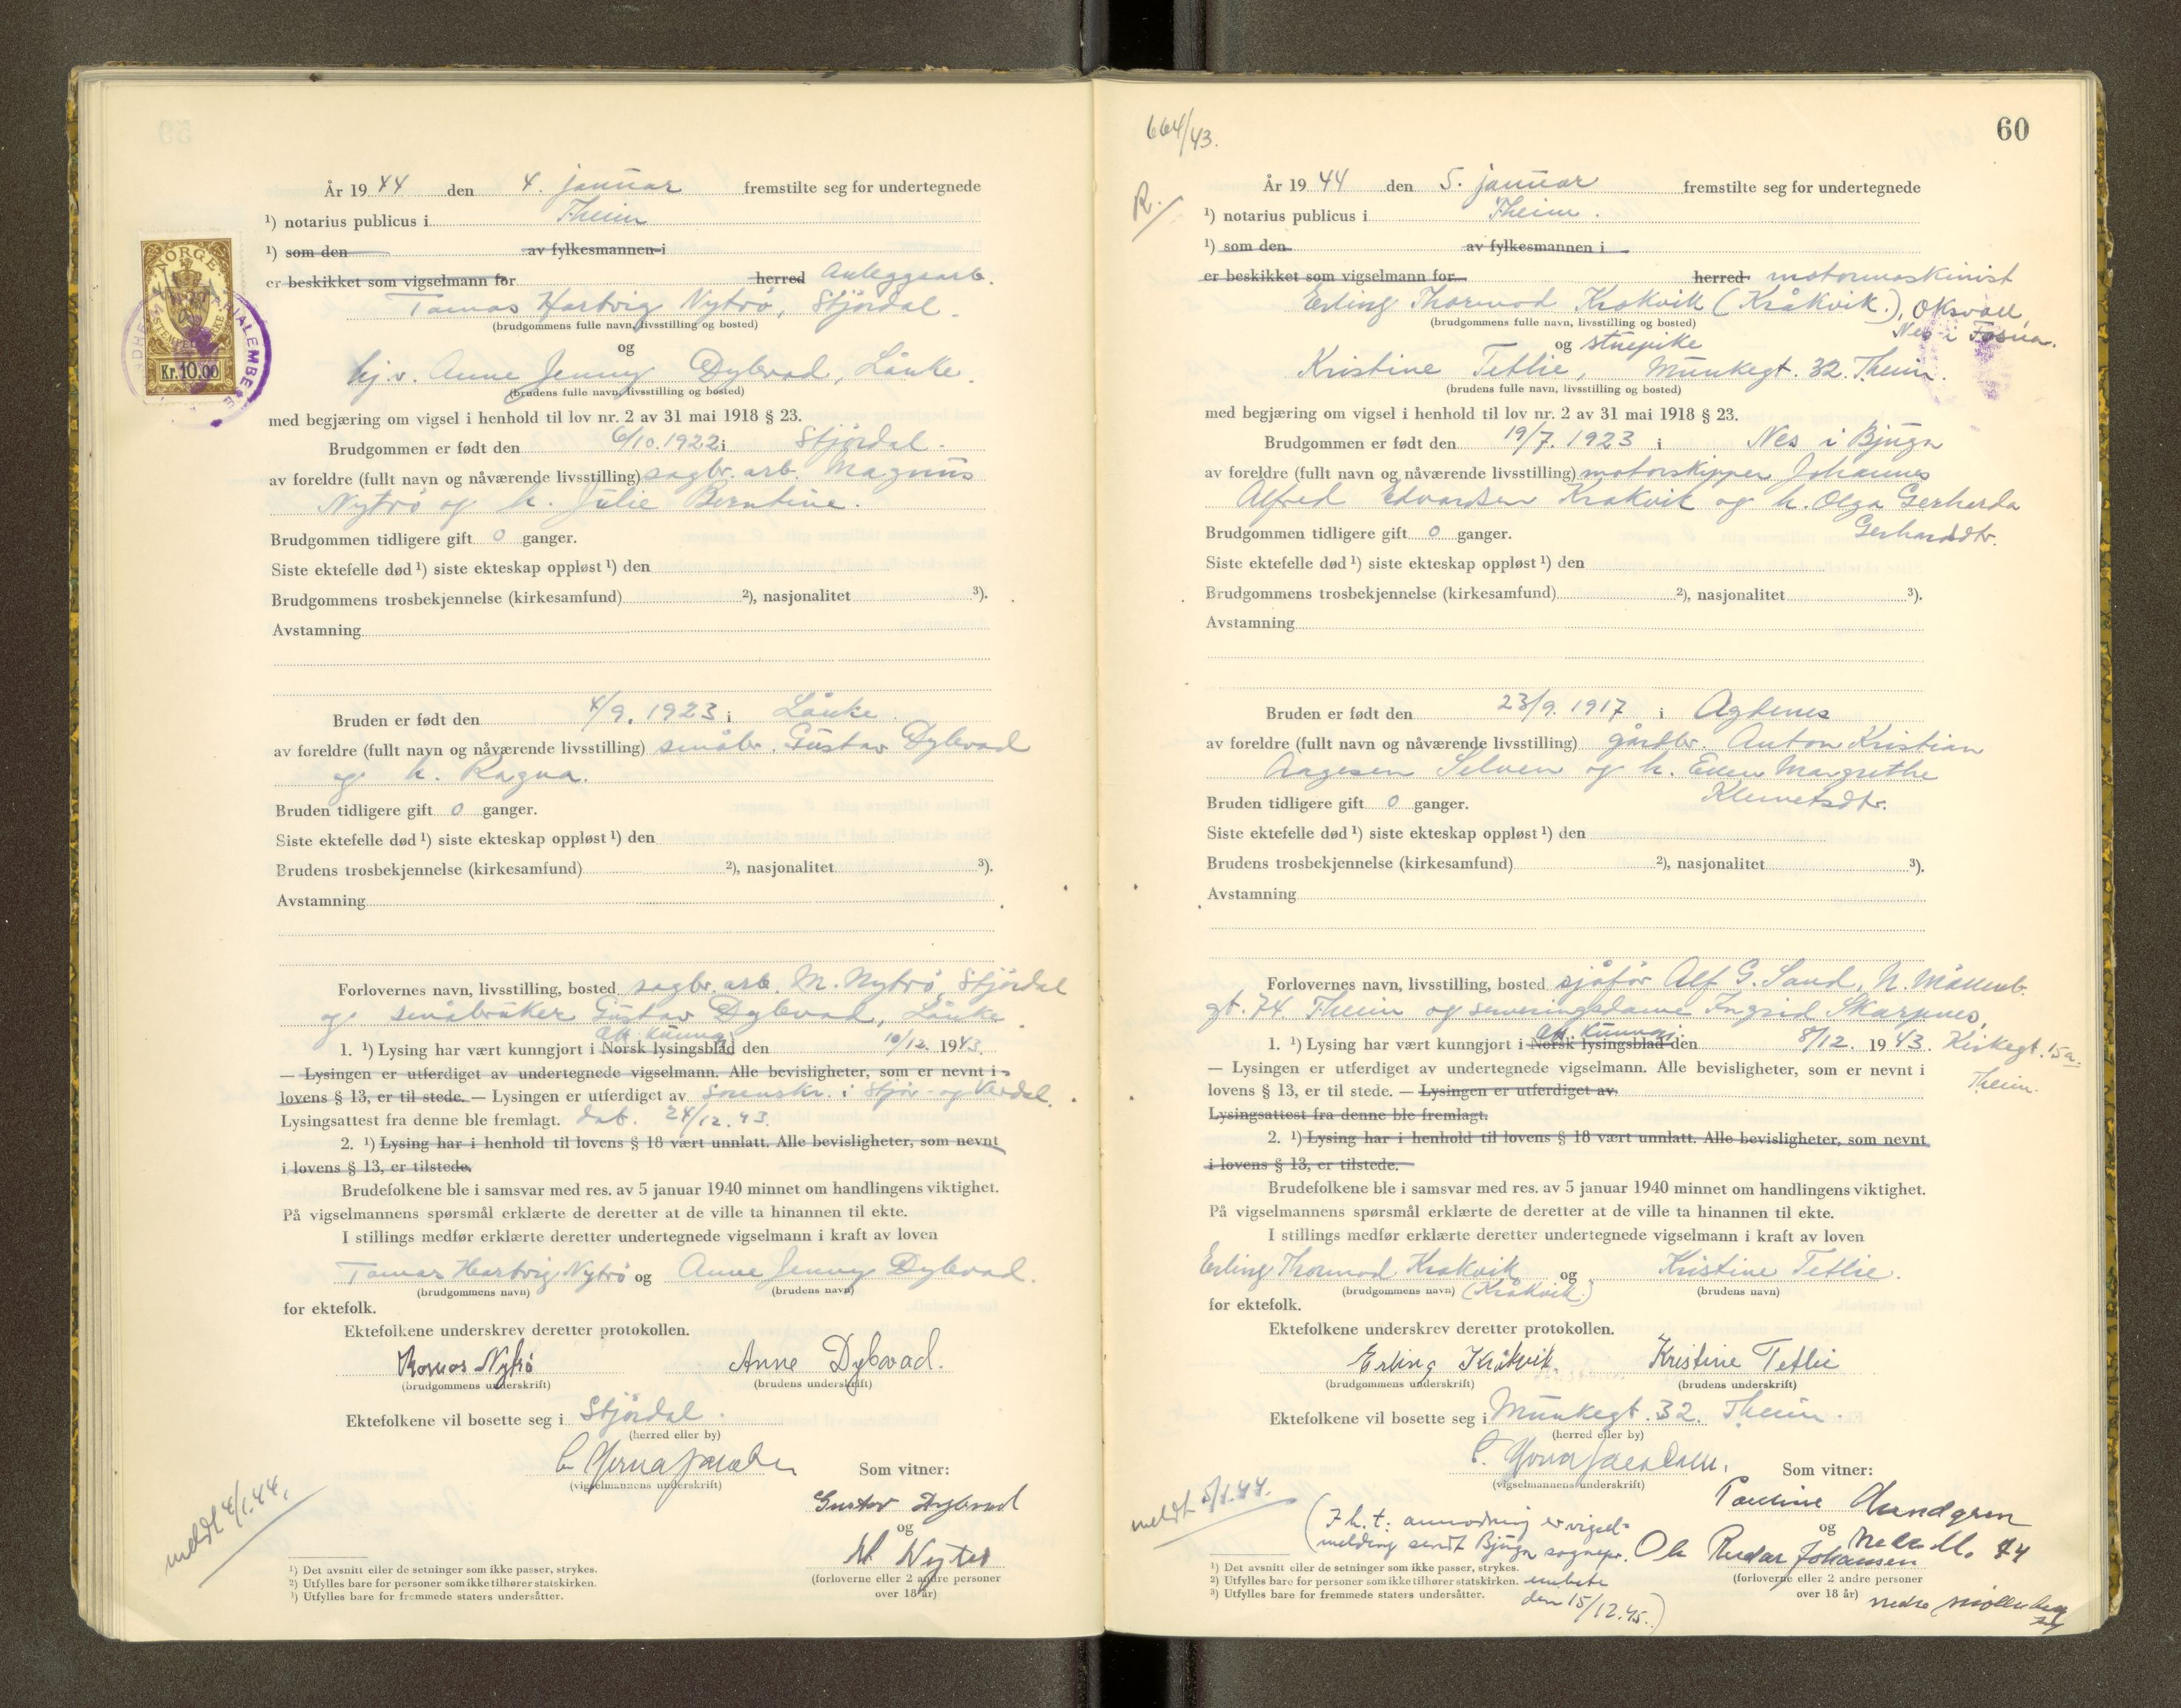 År 1944 den 4. januar fremstilte seg for undertegnede
¹) notarius publicus i Theim
¹) som den av fylkesmannen i
er beskikket som vigselmann for herred Anleggsarb.
Tomas Hartvig Nytrø, Stjørdal.
(brudgommens fulle navn, livsstilling og bosted)
og
hj.v. Anne Jenny Dybvad, Lånke.
(brudens fulle navn, livsstilling og bosted)
med begjæring om vigsel i henhold til lov nr. 2 av 31 mai 1918 § 23.
Brudgommen er født den 6/10.1922 i Stjørdal.
av foreldre (fullt navn og nåværende livsstilling) sagbr. arb. Magnus
Nytrø og h. Julie Berntine.
Brudgommen tidligere gift 0 ganger.
Siste ektefelle død ¹) siste ekteskap oppløst ¹) den
Brudgommens trosbekjennelse (kirkesamfund) ²), nasjonalitet ³).
Avstamning
Bruden er født den 4/9. 1923 i Lånke
av foreldre (fullt navn og nåværende livsstilling) småbr. Gustav Dybvad
og h. Ragna.
Bruden tidligere gift 0 ganger.
Siste ektefelle død ¹) siste ekteskap oppløst ¹) den
Brudens trosbekjennelse (kirkesamfund) ²), nasjonalitet ³).
Avstamning
Forlovernes navn, livsstilling, bosted sagbr. arb. M. Nytrø, Stjørdal
og småbruker Gustav Dybvad, Lånke
off. kunngj.
1. ¹) Lysing har vært kunngjort i Norsk lysingsblad den 10/12. 1943.
— Lysingen er utferdiget av undertegnede vigselmann. Alle bevisligheter, som er nevnt i
lovens § 13, er til stede. — Lysingen er utferdiget av Sorenskr. i Stjør- og Verdal.
Lysingsattest fra denne ble fremlagt. dat. 24/12.43.
2. ¹) Lysing har i henhold til lovens § 18 vært unnlatt. Alle bevisligheter, som nevnt
i lovens § 13, er tilstede.
Brudefolkene ble i samsvar med res. av 5 januar 1940 minnet om handlingens viktighet.
På vigselmannens spørsmål erklærte de deretter at de ville ta hinannen til ekte.
I stillings medfør erklærte deretter undertegnede vigselmann i kraft av loven
Tomas Hartvig Nytrø og Anne Jenny Dybvad.
(brudgommens navn) (brudens navn)
for ektefolk.
Ektefolkene underskrev deretter protokollen.
Tomas Nytrø Anne Dybvad.
(brudgommens underskrift) (brudens underskrift)
Ektefolkene vil bosette seg i Stjørdal.
(herred eller by)
(vigselmannens underskrift) Som vitner:
Gustav Dybvad
og
M Nytrø
(forloverne eller 2 andre personer
over 18 år)
meldt 4/1.44.
¹) Det avsnitt eller de setninger som ikke passer, strykes.
²) Utfylles bare for personer som ikke tilhører statskirken.
³) Utfylles bare for fremmede staters undersåtter.
NORGE
Kr. 10.00
664/43.
60
R.
År 1944 den 5. januar fremstilte seg for undertegnede
¹) notarius publicus i Theim.
¹) som den av fylkesmannen i
er beskikket som vigselmann for herred motormaskinist
Erling Thormod Krakvik (Kråkvik.), Oksvoll,
(brudgommens fulle navn, livsstilling og bosted) Nes i Fosna.
og stuepike
Kristine Tetlie, Munkegt. 32. Theim.
(brudens fulle navn, livsstilling og bosted)
med begjæring om vigsel i henhold til lov nr. 2 av 31 mai 1918 § 23.
Brudgommen er født den 19/7. 1923 i Nes i Bjugn
av foreldre (fullt navn og nåværende livsstilling) motorskipper Johannes
Alfred Edvardsen Krakvik og h. Olga Gerharda
Brudgommen tidligere gift 0 ganger. Gerhardsdtr.
Siste ektefelle død ¹) siste ekteskap oppløst ¹) den
Brudgommens trosbekjennelse (kirkesamfund) ²), nasjonalitet ³).
Avstamning
Bruden er født den 23/9. 1917 i Agdenes
av foreldre (fullt navn og nåværende livsstilling) gårdbr. Anton Kristian
Aagesen Selven og h. Ellen Margrethe
Bruden tidligere gift 0 ganger. Klemetsdtr.
Siste ektefelle død ¹) siste ekteskap oppløst ¹) den
Brudens trosbekjennelse (kirkesamfund) ²), nasjonalitet ³).
Avstamning
Forlovernes navn, livsstilling, bosted sjåfør Alf G. Sand, N. Møllenb.
gt. 74. Theim og serveringsdame Ingrid Skarpnes,
off. kunngj.
1. ¹) Lysing har vært kunngjort i Norsk lysingsblad den 8/12. 1943. Kirkegt. 15a.
— Lysingen er utferdiget av undertegnede vigselmann. Alle bevisligheter, som er nevnt i Theim.
lovens § 13, er til stede. — Lysingen er utferdiget av
Lysingsattest fra denne ble fremlagt.
2. ¹) Lysing har i henhold til lovens § 18 vært unnlatt. Alle bevisligheter, som nevnt
i lovens § 13, er tilstede.
Brudefolkene ble i samsvar med res. av 5 januar 1940 minnet om handlingens viktighet.
På vigselmannens spørsmål erklærte de deretter at de ville ta hinannen til ekte.
I stillings medfør erklærte deretter undertegnede vigselmann i kraft av loven
Erling Thormod Krakvik og Kristine Tetlie.
(brudgommens navn) (Kråkvik.) (brudens navn)
for ektefolk.
Ektefolkene underskrev deretter protokollen.
Erling Kråkvik. Kristine Tetlie
(brudgommens underskrift) (brudens underskrift)
Ektefolkene vil bosette seg i Munkegt. 32. Theim.
(herred eller by)
(vigselmannens underskrift) Som vitner:
meldt 5/1.44.
Pauline Lundgren
og
(F.h.t. anmodning er vigsel-
melding sendt Bjugn sognepr.
embete
den 15/12.45.)
Ole Reidar Johansen
(forloverne eller 2 andre personer
over 18 år)
¹) Det avsnitt eller de setninger som ikke passer, strykes.
²) Utfylles bare for personer som ikke tilhører statskirken.
³) Utfylles bare for fremmede staters undersåtter.